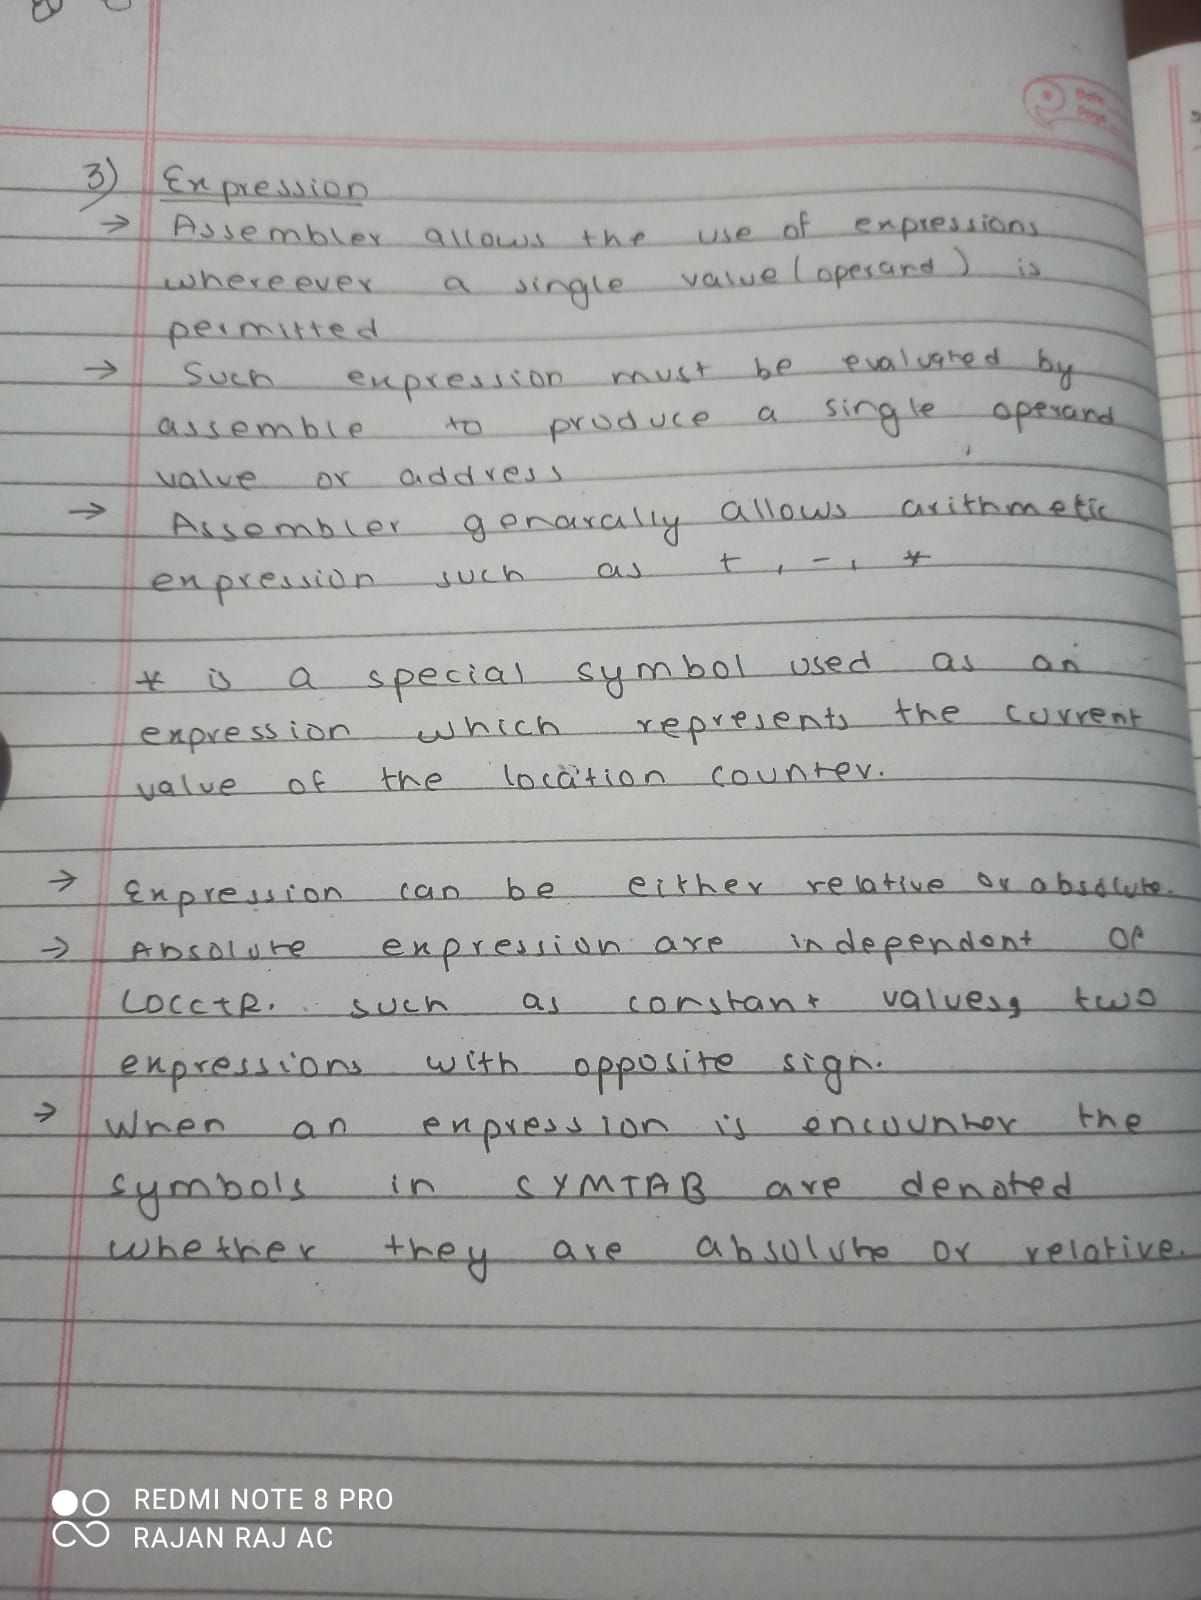 3) Expression
→ Assembler allows the use of expressions
whereever a single value (operand) is
permitted
→ Such expression must be evaluated by
assemble to produce a single operand
value or address
→ Assembler genarally allows arithmetic
expression such as +, -, *
* is a special symbol used as an
expression which represents the current
value of the location counter.
→ Expression can be either relative or absolute.
→ Absolute expression are independent of
LOCCtR. such as constant values, two
expressions with opposite sign.
→ When an expression is encounter the
symbols in SYMTAB are denoted
whether they are absolute or relative.
REDMI NOTE 8 PRO
RAJAN RAJ AC